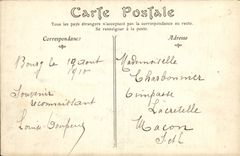 Carte Postale
Tous les pays étrangers n'acceptent pas la correspondance au recto.
Se renseigner à la poste.
Correspondance
Adresse
Bourg le 19 aout
1910
Souvenir
reconnaissant
Louise
Mademoiselle
Charbonnier
Lacretelle
Macon
S et L